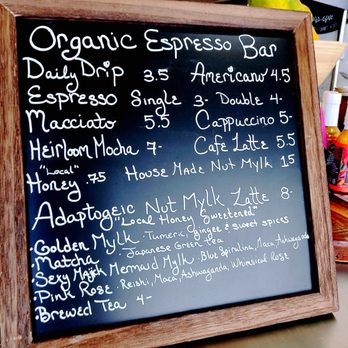 Organic Espresso Bar
Daily Drip 3.5 Americano 4.5
Espresso Single 3- Double 4-
Macciato 5.5 Cappuccino 5-
Heirloom Mocha 7- Cafe Latte 5.5
"Local"
Honey .75 House Made Nut Mylk 1.5
Adaptogeic Nut Mylk Latte 8-
"Local Honey Sweetened"
·Golden Mylk ·Turmeric, Ginger & sweet spices
·Matcha ·Japanese Green Tea
·Sexy Majick Mermaid Mylk ·Blue Spirulina, Maca, Ashwaganda
·Pink Rose ·Reishi, Maca, Ashwaganda, Whimsical Rose
·Brewed Tea 4-